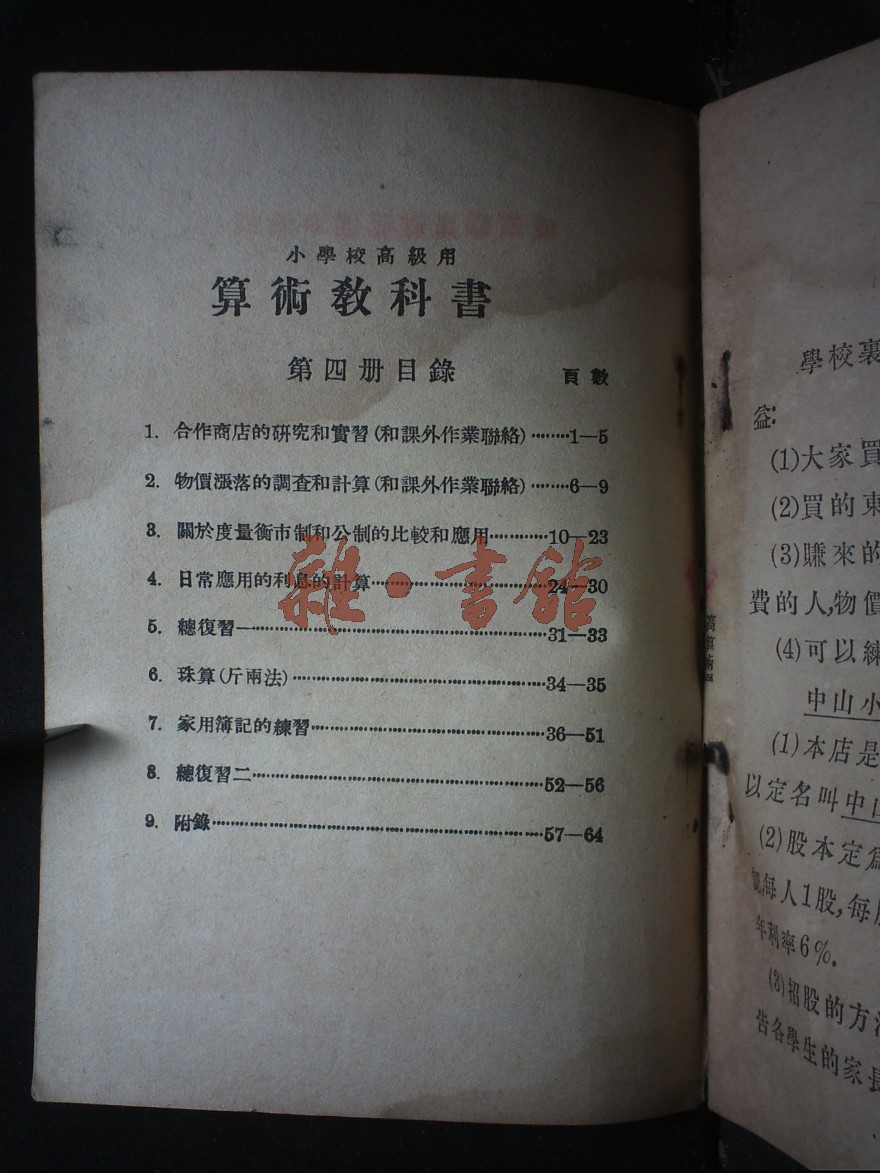 小學校高級用
算術教科書
第四册目錄 頁數
1. 合作商店的硏究和實習(和課外作業聯絡)………1—5
2. 物價漲落的調查和計算(和課外作業聯絡)………6—9
3. 關於度量衡市制和公制的比較和應用…………10—23
4. 日常應用的利息的計算……………………24—30
5. 總復習一……………………………………31—33
6. 珠算(斤兩法)………………………………34—35
7. 家用簿記的練習……………………………36—51
8. 總復習二……………………………………52—56
9. 附錄…………………………………………57—64
雜·書館
學校裏
益:
(1)大家買
(2)買的東
(3)賺來的
費的人,物價
(4)可以練
中山小
(1)本店是
以定名叫中山
(2)股本定爲
每人1股,每股
年利率6%.
(3)招股的方法
告各學生的家長